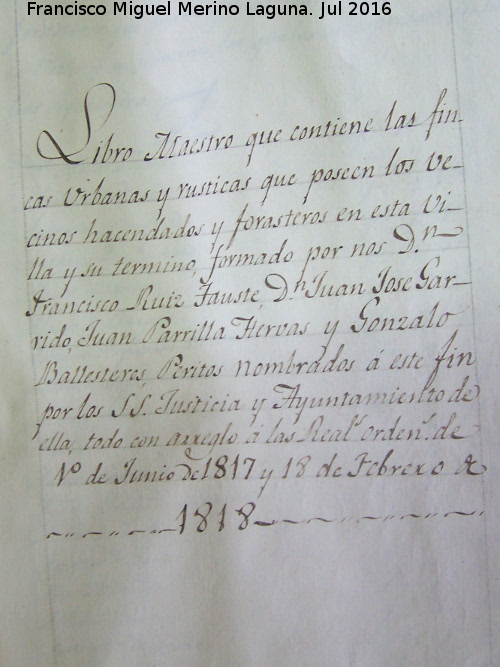 Francisco Miguel Merino Laguna. Jul 2016
Libro Maestro que contiene las fin-
cas Urbanas y rusticas que poseen los ve-
cinos hacendados y forasteros en esta Vi-
lla y su termino, formado por nos D.n
Francisco Ruiz Fauste, D.n Juan Jose Gar-
rido, Juan Parrilla Hervas y Gonzalo
Ballesteros, Peritos nombrados á este fin
por los S.S. Justicia y Ayuntamiento de
ella, todo con arreglo á las Real.s orden.s de
1.º de Junio de 1817 y 18 de Febrero de
1818